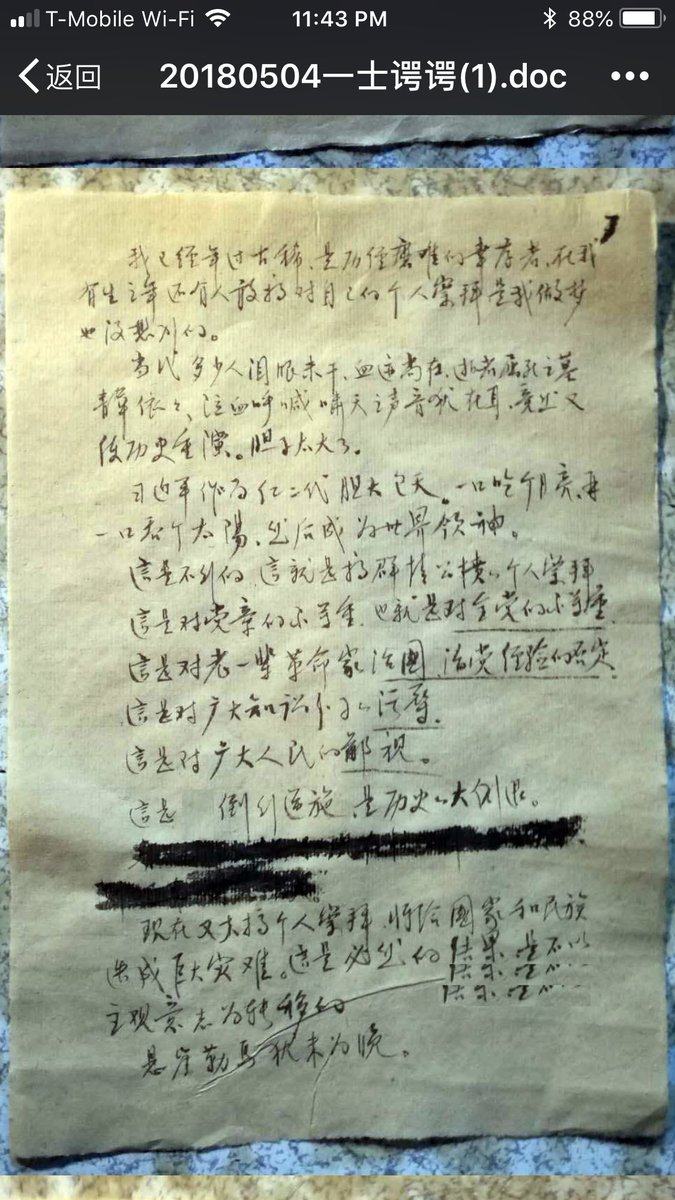 T-Mobile Wi-Fi 11:43 PM 88%
返回 20180504一士谔谔(1).doc •••
7
我已经年过古稀、是历经磨难的幸存者、在我
有生之年还有人敢搞对自己的个人崇拜是我做梦
也没想到的。
当代多少人泪眼未干、血迹尚在、逝者屈死之墓
青草依々、泣血呼喊啸天之声音犹在耳、竟然又
使历史重演。胆子太大了。
习近平作为红二代胆大包天。一口吃个月亮、再
一口吞个太陽、然后成为世界领神。
這是不行的、這就是搞
個人崇拜
這是对党章的不尊重、也就是对全党的不尊重、
這是对老一辈革命家治國、治党经验的否定
這是对广大知识分子的污辱
這是对广大人民的鄙視。
這是 倒行逆施、是历史的大倒退。
现在又大搞个人崇拜、将给國家和民族
造成巨大灾难。這是必然的结果、是不以
主观意志为转移的
悬崖勒马犹未为晚。